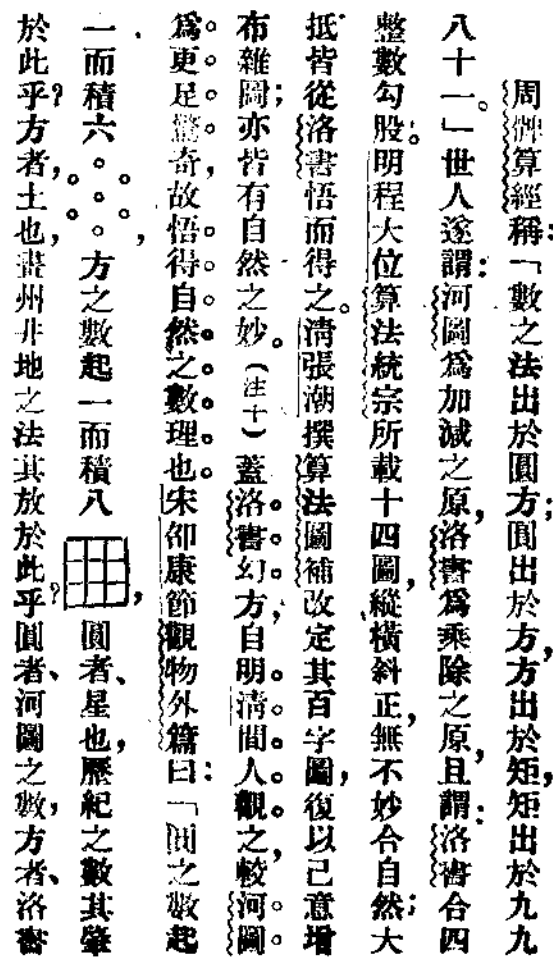 周髀算經稱：「數之法出於圓方；圓出於方，方出於矩，矩出於九九
八十一。」世人遂謂：河圖爲加減之原，洛書爲乘除之原，且謂：洛書合四
整數勾股。明程大位算法統宗所載十四圖，縱橫斜正，無不妙合自然；大
抵皆從洛書悟而得之。清張潮撰算法圖補改定其百字圖，復以己意增
布雜圖；亦皆有自然之妙。（注十）蓋洛書幻方，自明清間人觀之，較河圖
爲更足驚奇，故悟得自然之數理也。宋邵康節觀物外篇曰：「圓之數起
一而積六，方之數起一而積八，圓者、星也，歷紀之數其肇
於此乎？方者，土也，畫州井地之法其放於此乎？圓者、河圖之數，方者、洛書